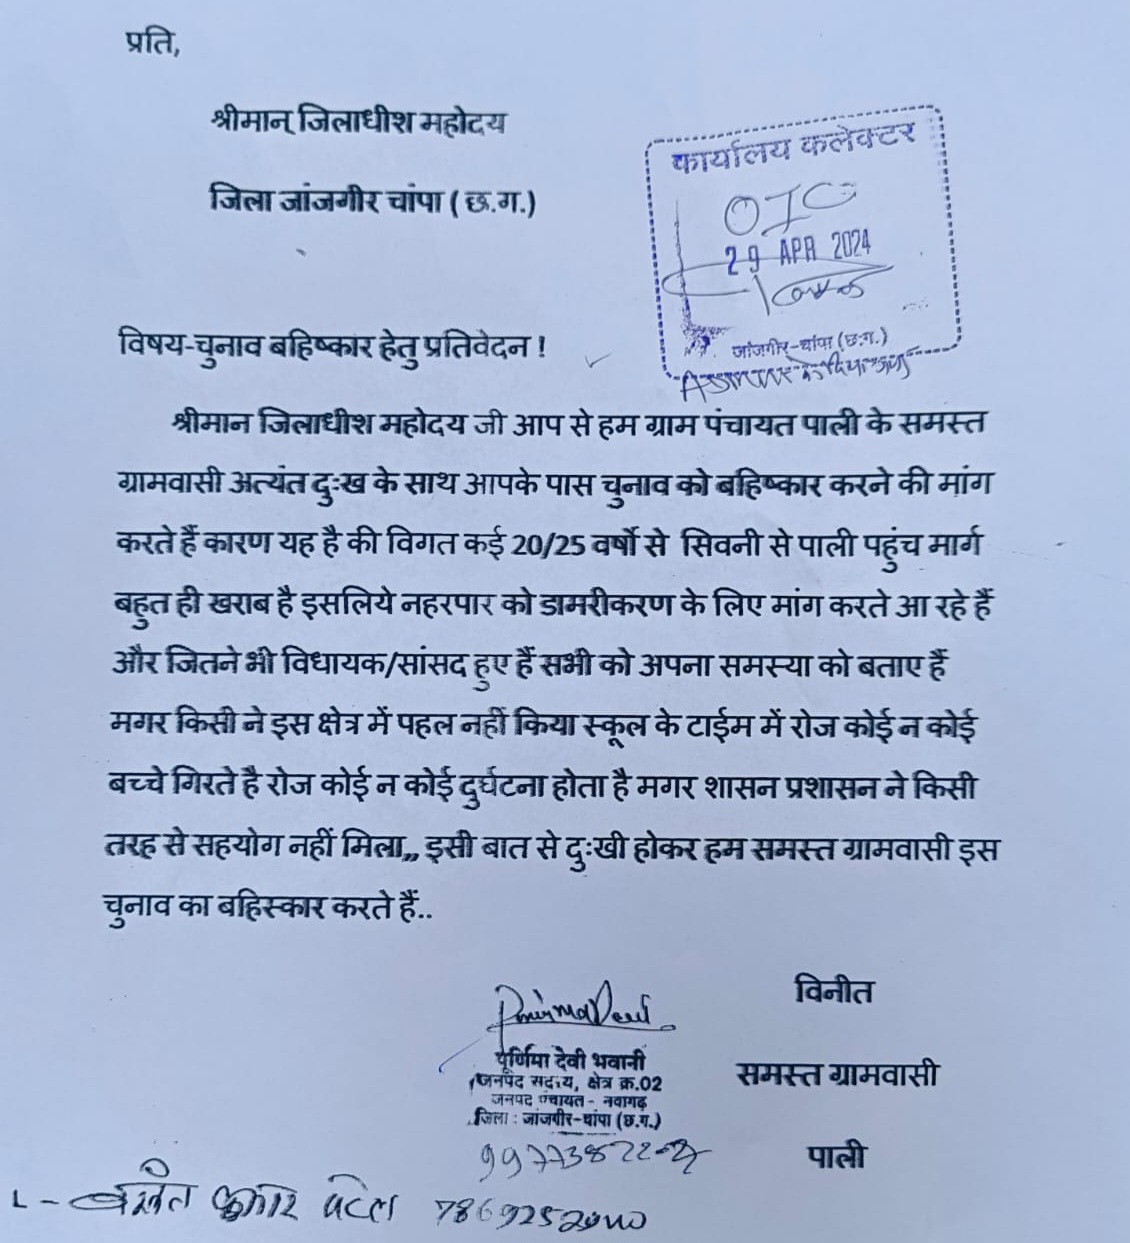 प्रति,
श्रीमान् जिलाधीश महोदय
जिला जांजगीर चांपा ( छ.ग.)
कार्यालय कलेक्टर
OIC
29 APR 2024
जांजगीर-चांपा (छ.ग.)
विषय-चुनाव बहिष्कार हेतु प्रतिवेदन !
श्रीमान जिलाधीश महोदय जी आप से हम ग्राम पंचायत पाली के समस्त
ग्रामवासी अत्यंत दुःख के साथ आपके पास चुनाव को बहिष्कार करने की मांग
करते हैं कारण यह है की विगत कई 20/25 वर्षो से सिवनी से पाली पहुंच मार्ग
बहुत ही खराब है इसलिये नहरपार को डामरीकरण के लिए मांग करते आ रहे हैं
और जितने भी विधायक/सांसद हुए हैं सभी को अपना समस्या को बताए हैं
मगर किसी ने इस क्षेत्र में पहल नहीं किया स्कूल के टाईम में रोज कोई न कोई
बच्चे गिरते है रोज कोई न कोई दुर्घटना होता है मगर शासन प्रशासन ने किसी
तरह से सहयोग नहीं मिला,,, इसी बात से दुःखी होकर हम समस्त ग्रामवासी इस
चुनाव का बहिस्कार करते हैं..
विनीत
समस्त ग्रामवासी
पाली
पूर्णिमा देवी भवानी
जनपद सदस्य, क्षेत्र क्र.02
जनपद पंचायत - नवागढ़
जिला : जांजगीर-चांपा (छ.ग.)
कुमार पटेल